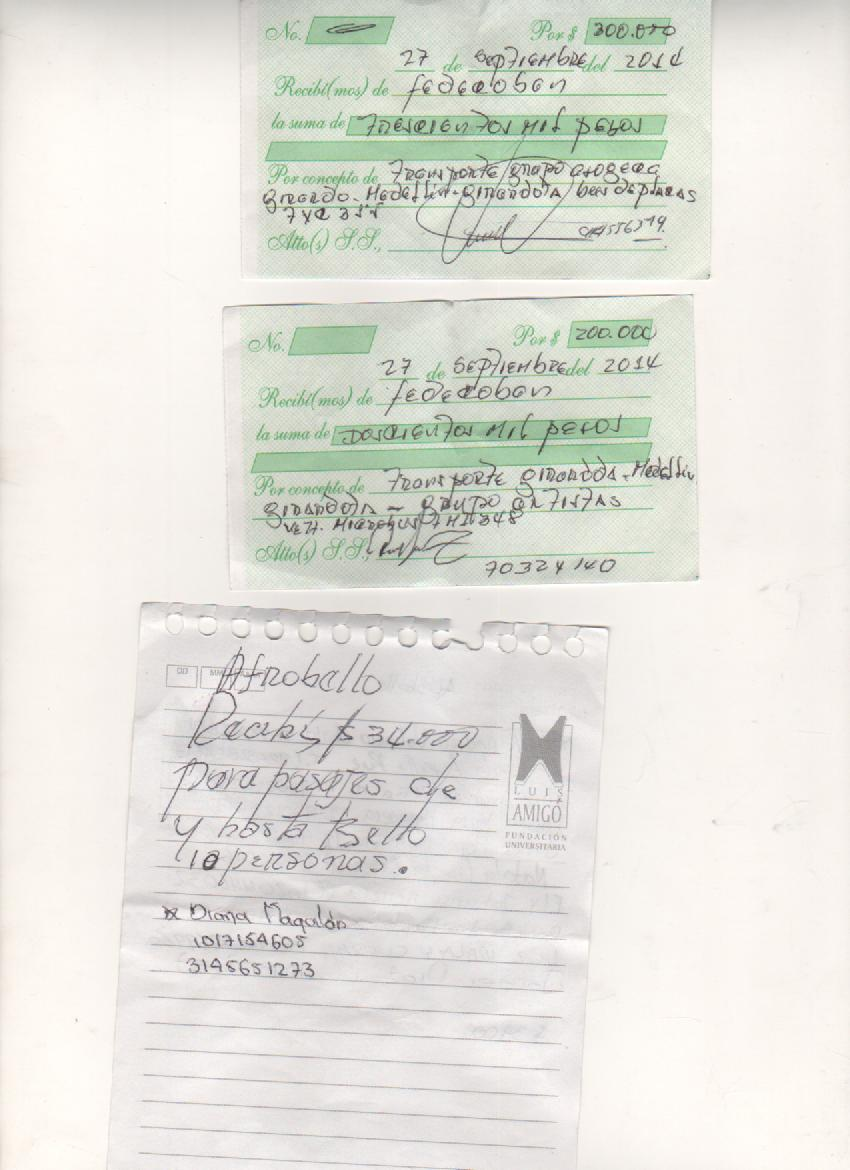 No. Por $ 300.000
27 de septiembre del 2014
Recibí(mos) de fedecoben
la suma de Trescientos mil pesos
Por concepto de Transporte/grupo
Medellin - girardota
Atto(s) S.S.,
No. Por $ 200.000
27 de septiembre del 2014
Recibí(mos) de fedecoben
la suma de Doscientos mil pesos
Por concepto de Transporte girardota - Medellin
girardota - grupo artistas
Veh. Microbus 348
Atto(s) S.S.,
70324140
DD MM
Afrobello
Recibí $ 34.000
para pasajes de
y hasta Bello
10 personas.
Diana Magalón
1017154605
3145651273
LUIS
AMIGÓ
FUNDACIÓN
UNIVERSITARIA